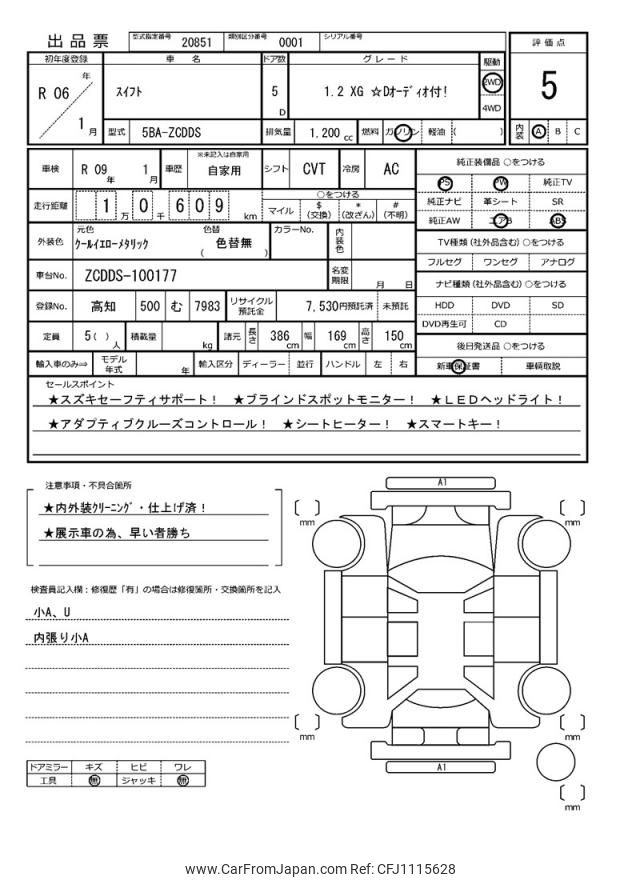 出品票 型式指定番号 20851 類別区分番号 0001 シリアル番号
初年度登録 車名 ドア数 グレード 駆動 評価点
R 06 年 1 月 スイフト 5 D 1.2 XG ☆Dオーディオ付! 2WD 4WD 5
型式 5BA-ZCDDS 排気量 1,200 cc 燃料 ガソリン 軽油 ( ) 内装 A B C
車検 R 09 年 1 月 車歴 ※未記入は自家用 自家用 シフト CVT 冷房 AC
純正装備品 ○をつける
PS PW 純正TV
純正ナビ 革シート SR
純正AW エアB ABS
走行距離 1 万 0 千 6 0 9 km
○をつける
マイル $ (交換) * (改ざん) # (不明)
外装色 元色 クールイエローメタリック 色替 ( 色替無 ) カラーNo. 内装色
TV種類 (社外品含む) ○をつける
フルセグ ワンセグ アナログ
車台No. ZCDDS-100177 名変期限 月 日
ナビ種類 (社外品含む) ○をつける
HDD DVD SD
DVD再生可 CD
登録No. 高知 500 む 7983 リサイクル預託金 7,530円預託済 未預託
定員 5 ( ) 人 積載量 kg 諸元 長さ 386 cm 幅 169 cm 高さ 150 cm
後日発送品 ○をつける
新車保証書 車輌取説
輸入車のみ⇒ モデル年式 年 輸入区分 ディーラー 並行 ハンドル 左 右
セールスポイント
★スズキセーフティサポート! ★ブラインドスポットモニター! ★LEDヘッドライト!
★アダプティブクルーズコントロール! ★シートヒーター! ★スマートキー!
注意事項・不具合箇所
★内外装クリーニング・仕上げ済!
★展示車の為、早い者勝ち
検査員記入欄:修復歴「有」の場合は修復箇所・交換箇所を記入
小A、U
内張り小A
ドアミラー キズ ヒビ ワレ
工具 無 ジャッキ 無
A1
[ ] mm
[ ] mm
[ ] mm
[ ] mm
A1
[ ] mm
www.CarFromJapan.com Ref: CFJ1115628